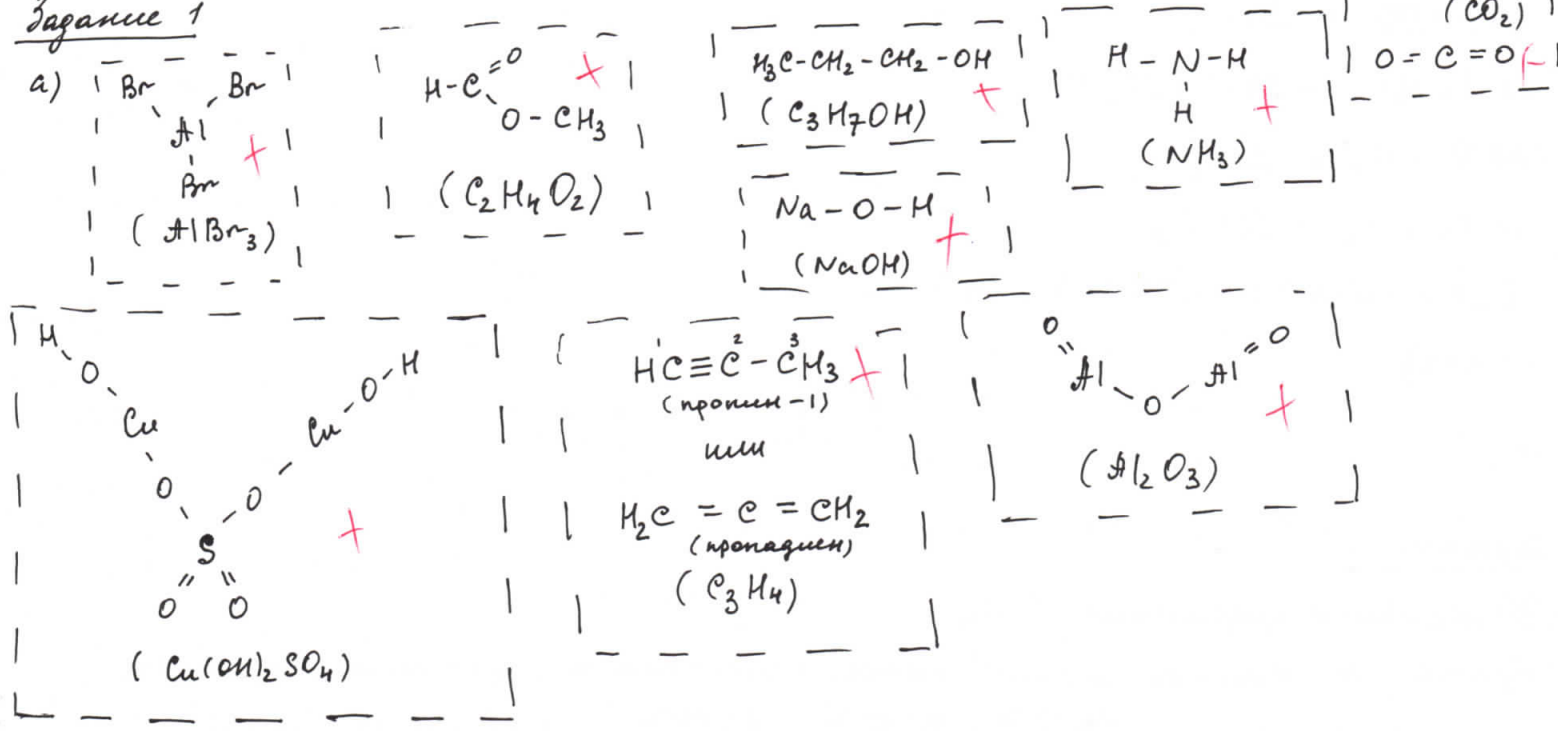 Задание 1
а)
Br Br
Al
Br
(AlBr3)
H-C=O
O-CH3
(C2H4O2)
H3C-CH2-CH2-OH
(C3H7OH)
Na-O-H
(NaOH)
H-N-H
H
(NH3)
(CO2)
O=C=O
H
O
Cu
O
S
O O
O
Cu
O-H
(Cu(OH)2SO4)
1 2 3
HC≡C-CH3
(пропин-1)
или
H2C=C=CH2
(пропадиен)
(C3H4)
O O
Al Al
O
(Al2O3)